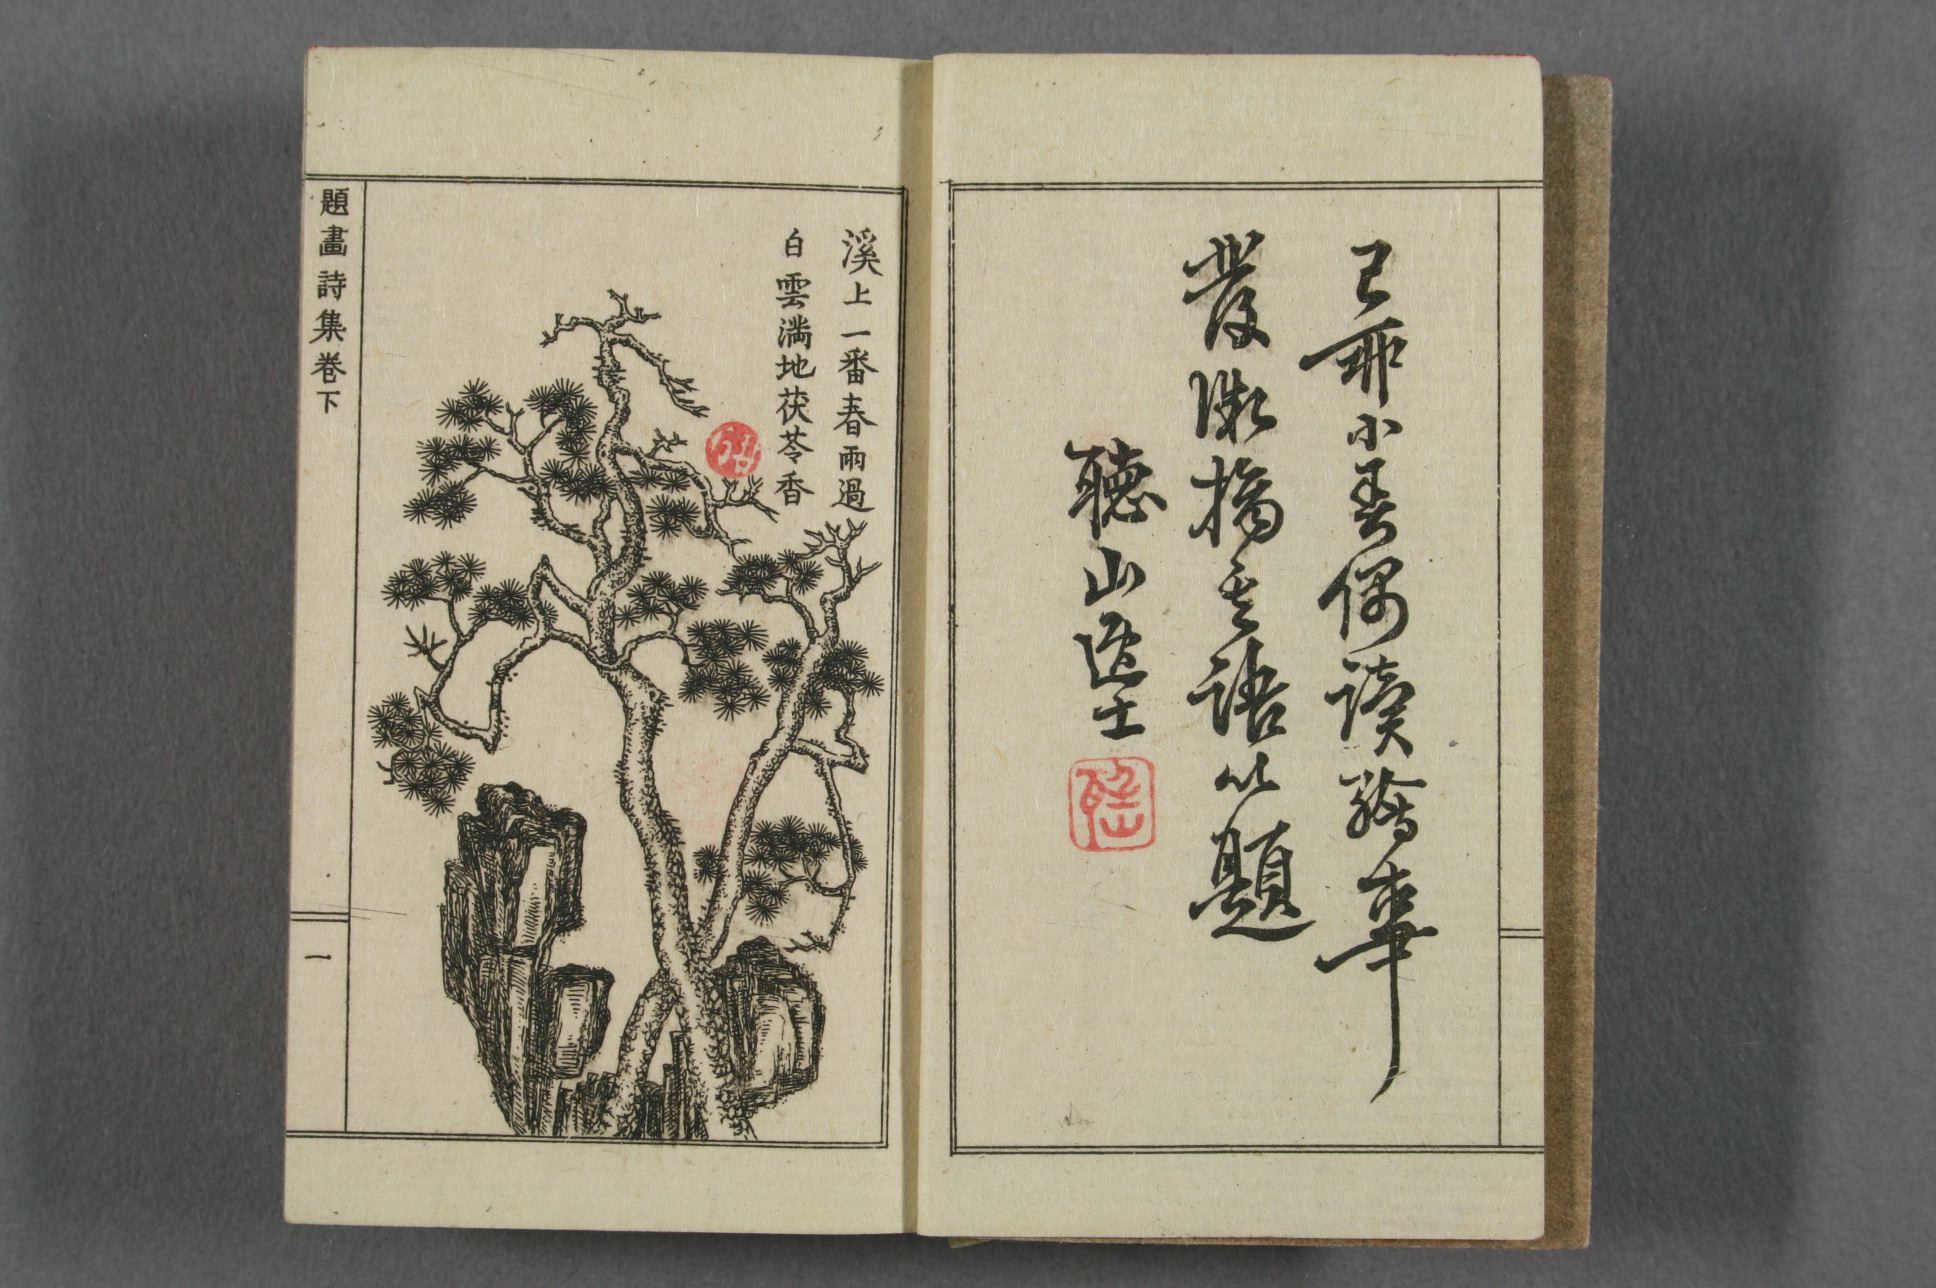 己卯小春偶讀
發微摘其語以題
聽山逸士
溪上一番春雨過
白雲満地茯苓香
題畫詩集卷下
一